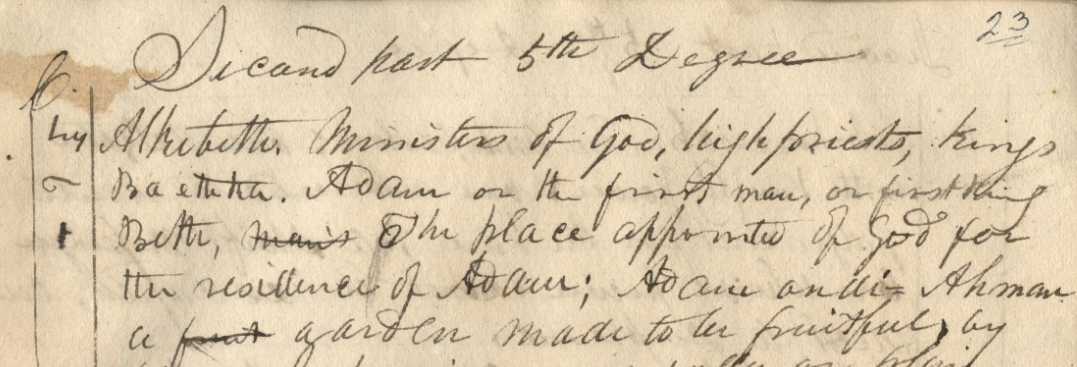 23
Second part 5th Degree
Alkebeth. Ministers of God, high priests, kings
Baeth ka. Adam or the first man, or first king
Beth, man's The place appointed of God for
the residence of Adam; Adam ondi= Ahman
a fruit garden made to be fruitful, by